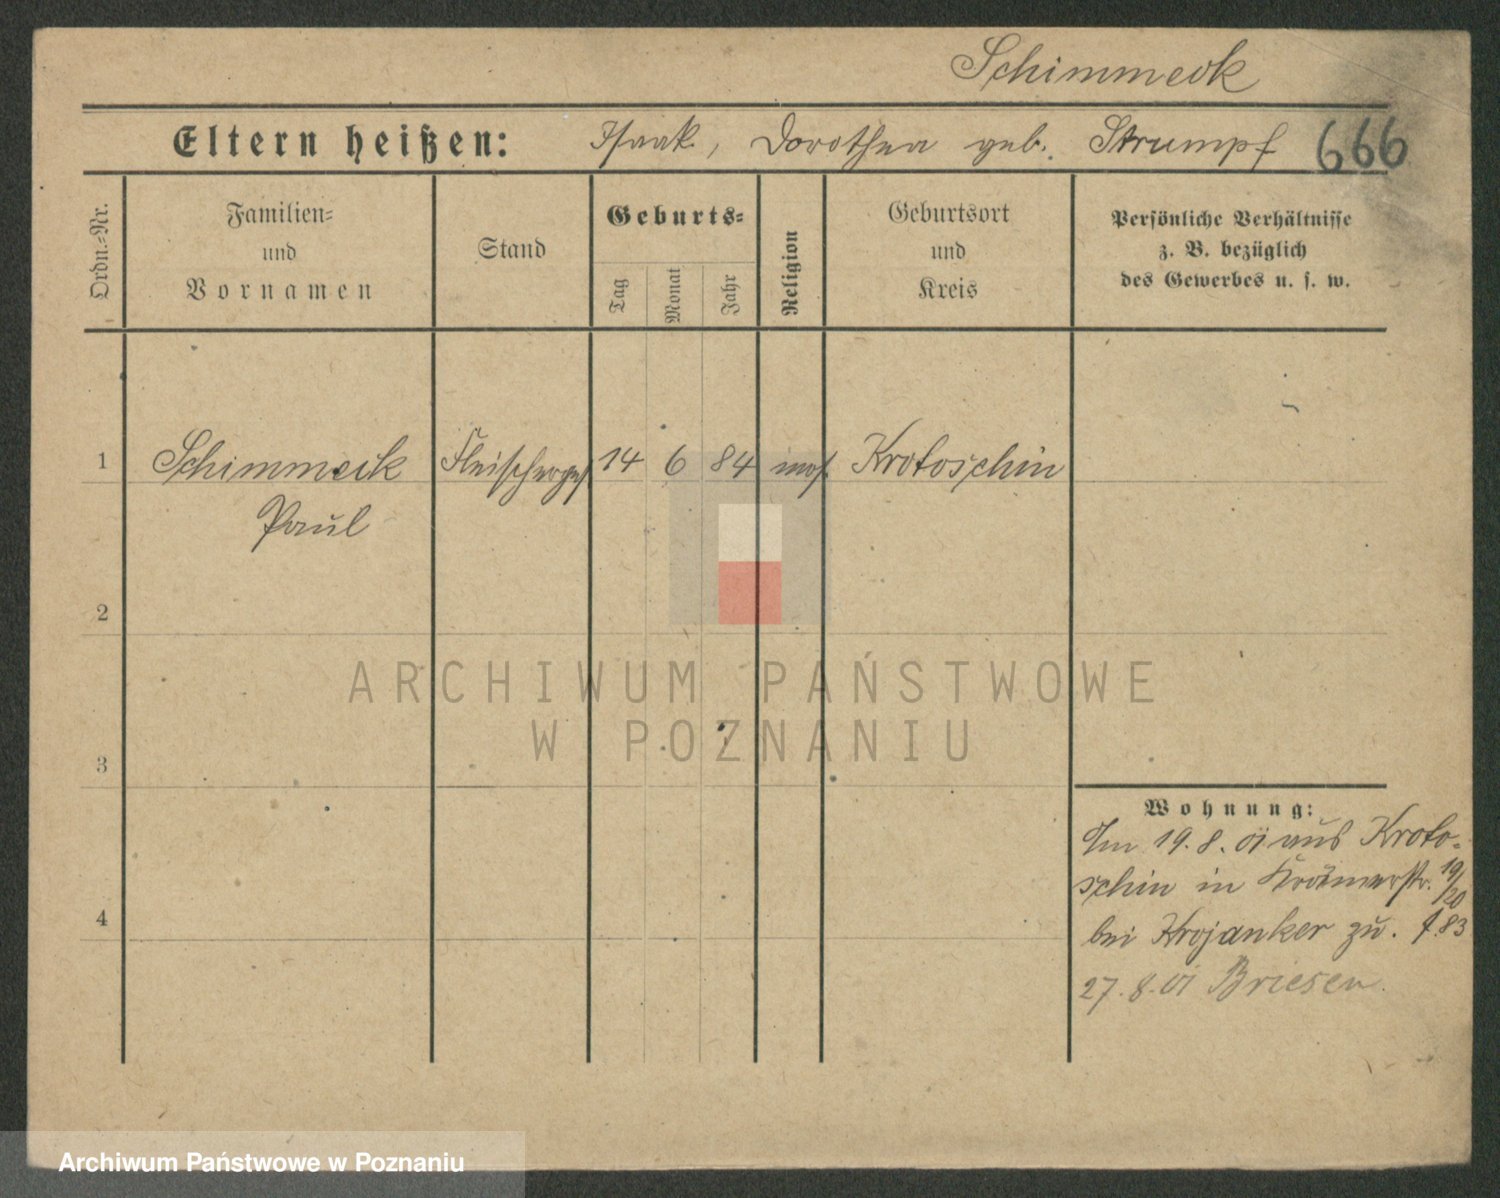 Schimmeck
Eltern heißen: Isaak, Dorothea geb. Strumpf 666
Ordn.=Nr.
Familien=
und
Vornamen
Stand
Geburts=
Tag
Monat
Jahr
Religion
Geburtsort
und
Kreis
Persönliche Verhältnisse
z. B. bezüglich
des Gewerbes u. s. w.
1 Schimmeck Fleischerges 14 6 84 mos. Krotoschin
Paul
2
3
4
Wohnung:
Am 19. 8. 01 aus Kroto-
schin in Krämerstr. 19/20
bei Krojanker zu. 83
27. 8. 01 Briesen.
ARCHIWUM PAŃSTWOWE
W POZNANIU
Archiwum Państwowe w Poznaniu